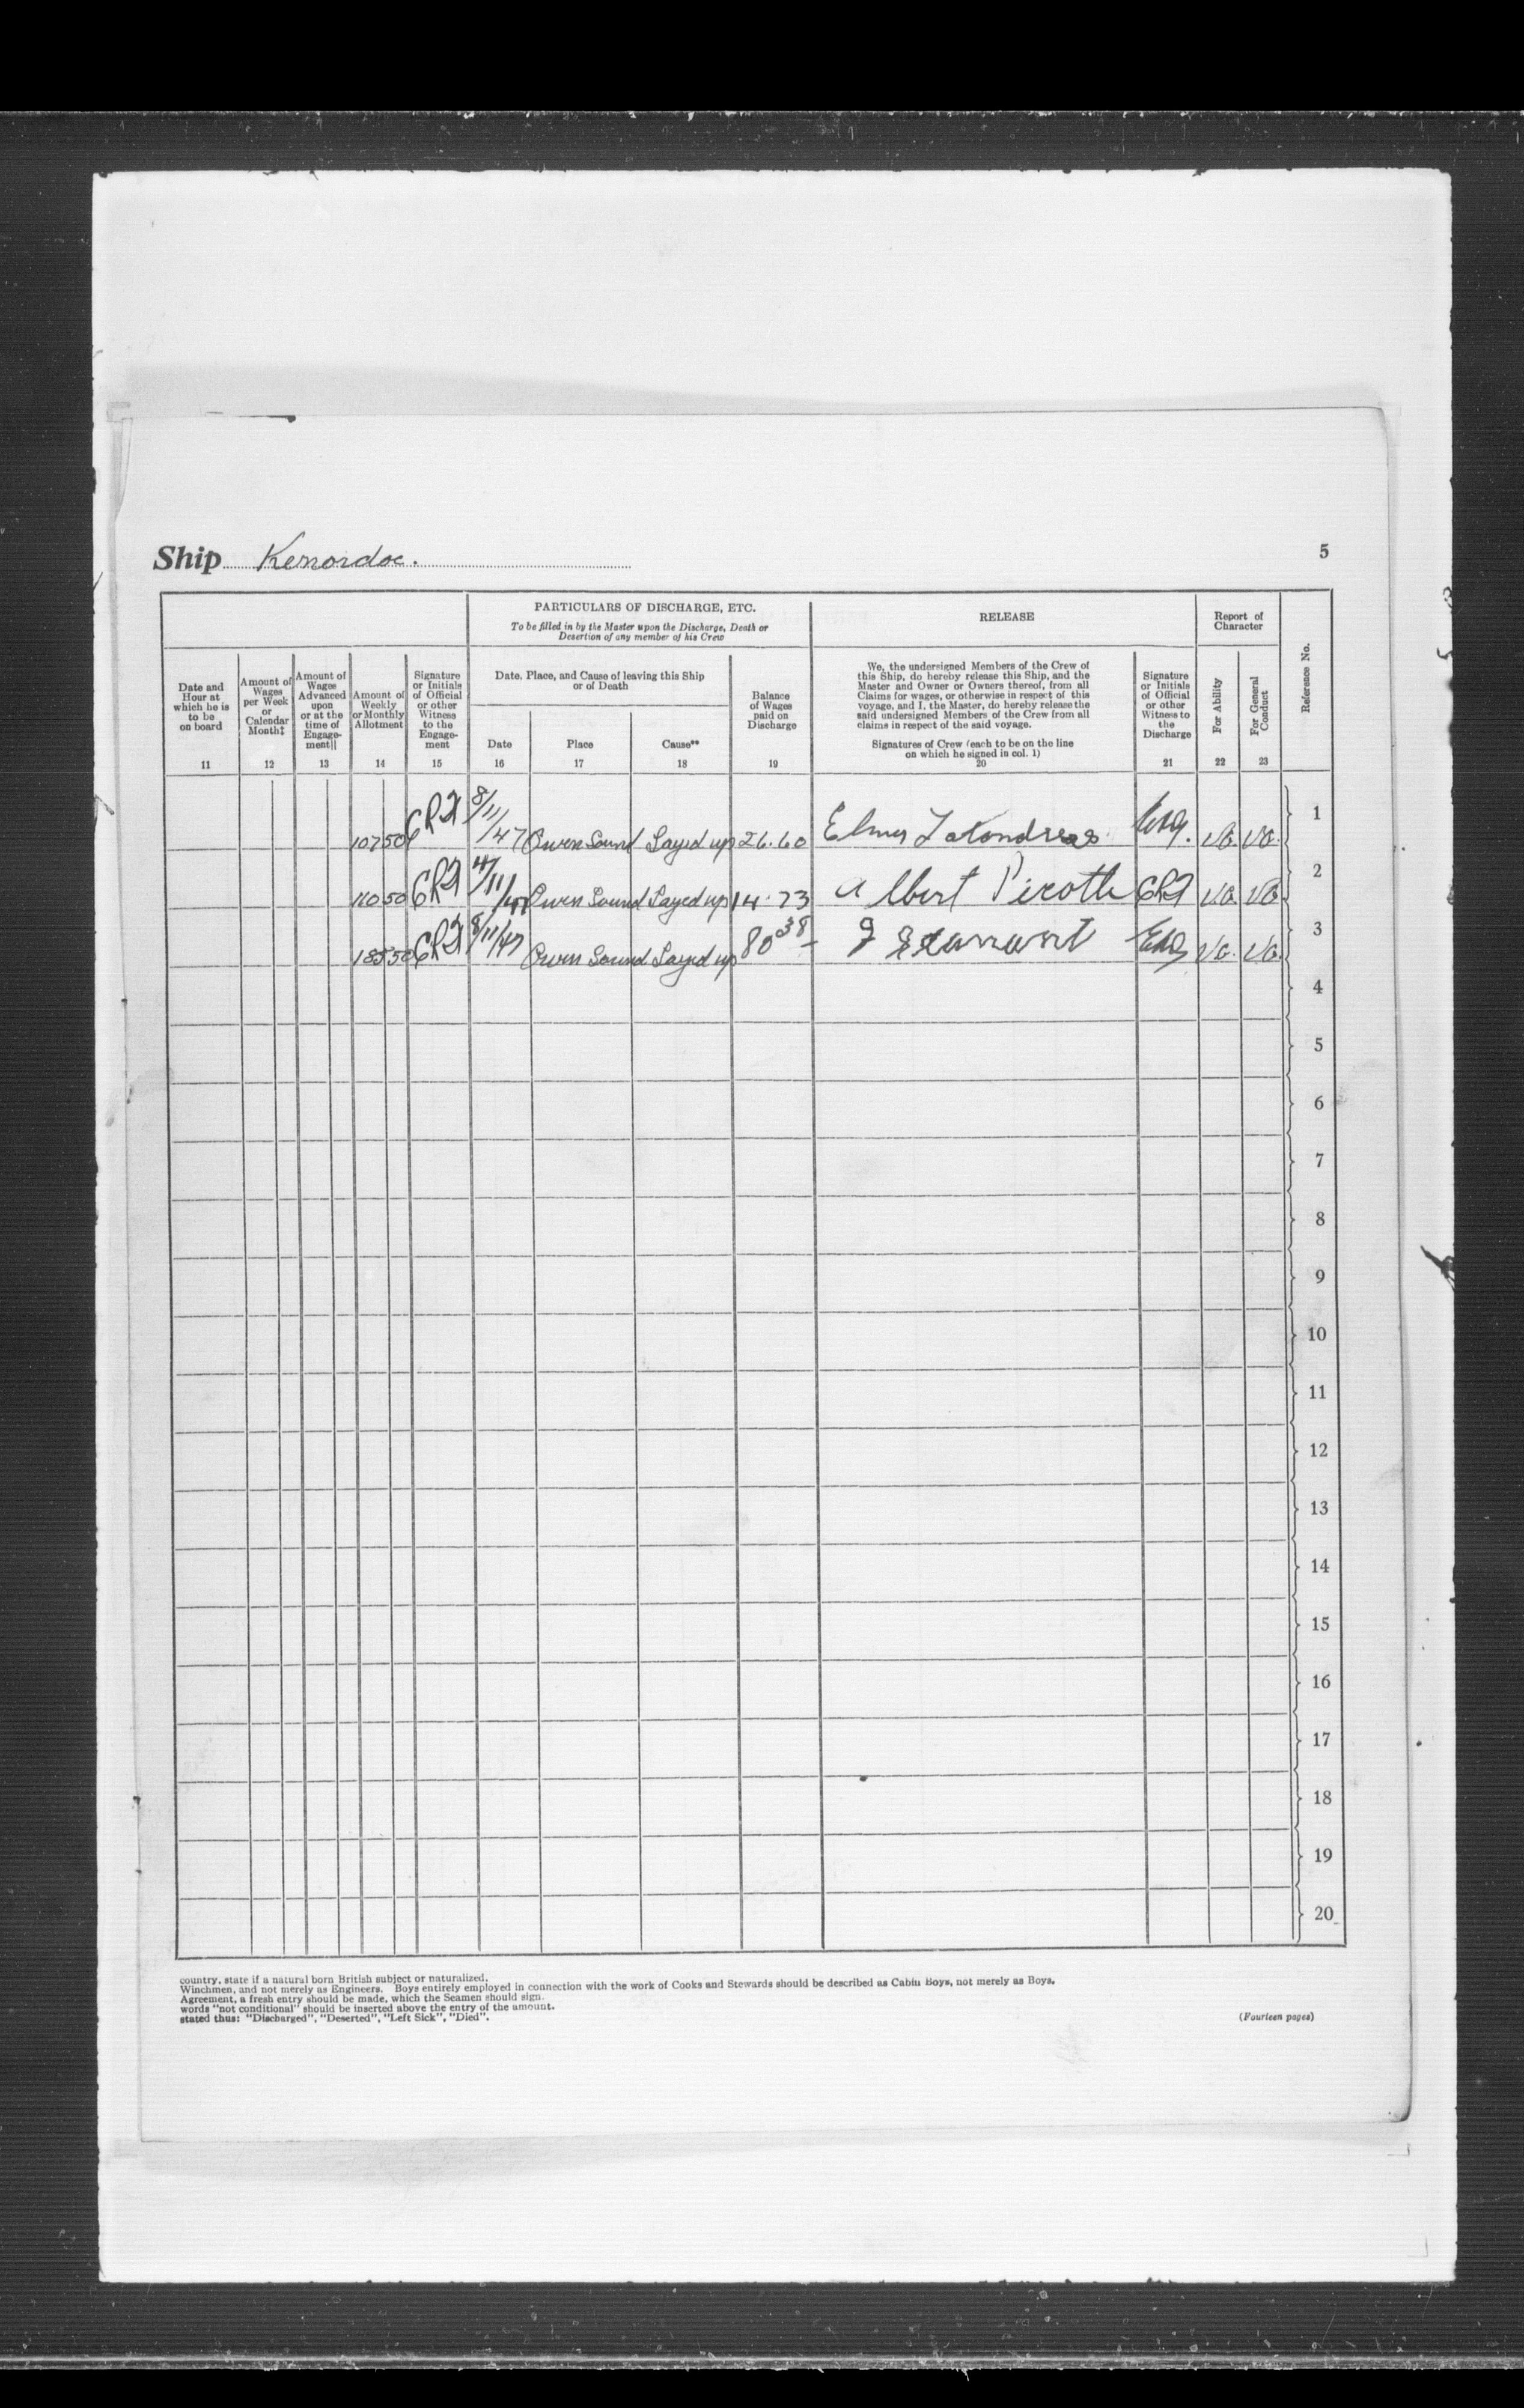 Ship Kenordoc.
5
PARTICULARS OF DISCHARGE, ETC.
To be filled in by the Master upon the Discharge, Death or
Desertion of any member of his Crew
RELEASE
Report of
Character
Reference No.
Date and
Hour at
which he is
to be
on board
11
Amount of
Wages
per Week
or
Calendar
Month‡
12
Amount of
Wages
Advanced
upon
or at the
time of
Engage-
ment||
13
Amount of
Weekly
or Monthly
Allotment
14
Signature
or Initials
of Official
or other
Witness
to the
Engage-
ment
15
Date, Place, and Cause of leaving this Ship
or of Death
Date
16
Place
17
Cause**
18
Balance
of Wages
paid on
Discharge
19
We, the undersigned Members of the Crew of
this Ship, do hereby release this Ship, and the
Master and Owner or Owners thereof, from all
Claims for wages, or otherwise in respect of this
voyage, and I, the Master, do hereby release the
said undersigned Members of the Crew from all
claims in respect of the said voyage.
Signatures of Crew (each to be on the line
on which he signed in col. 1)
20
Signature
or Initials
of Official
or other
Witness to
the
Discharge
21
For Ability
22
For General
Conduct
23
107 50 8/11/47 Owen Sound Layed up 26.60 Elmer VG. VG. 1
110 50 /11/47 Owen Sound Layed up 14.73 Albert VG. VG. 2
185 50 8/11/47 Owen Sound Layed up 80 38 VG. VG. 3
4
5
6
7
8
9
10
11
12
13
14
15
16
17
18
19
20
country, state if a natural born British subject or naturalized.
Winchmen, and not merely as Engineers. Boys entirely employed in connection with the work of Cooks and Stewards should be described as Cabin Boys, not merely as Boys.
Agreement, a fresh entry should be made, which the Seamen should sign.
words "not conditional" should be inserted above the entry of the amount.
stated thus: "Discharged", "Deserted", "Left Sick", "Died".
(Fourteen pages)